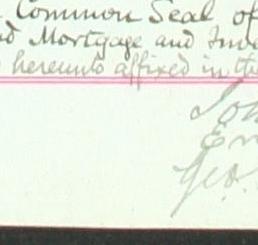 Common Seal of
Mortgage and Inve
hereunto affixed in the
Joh
Geo.